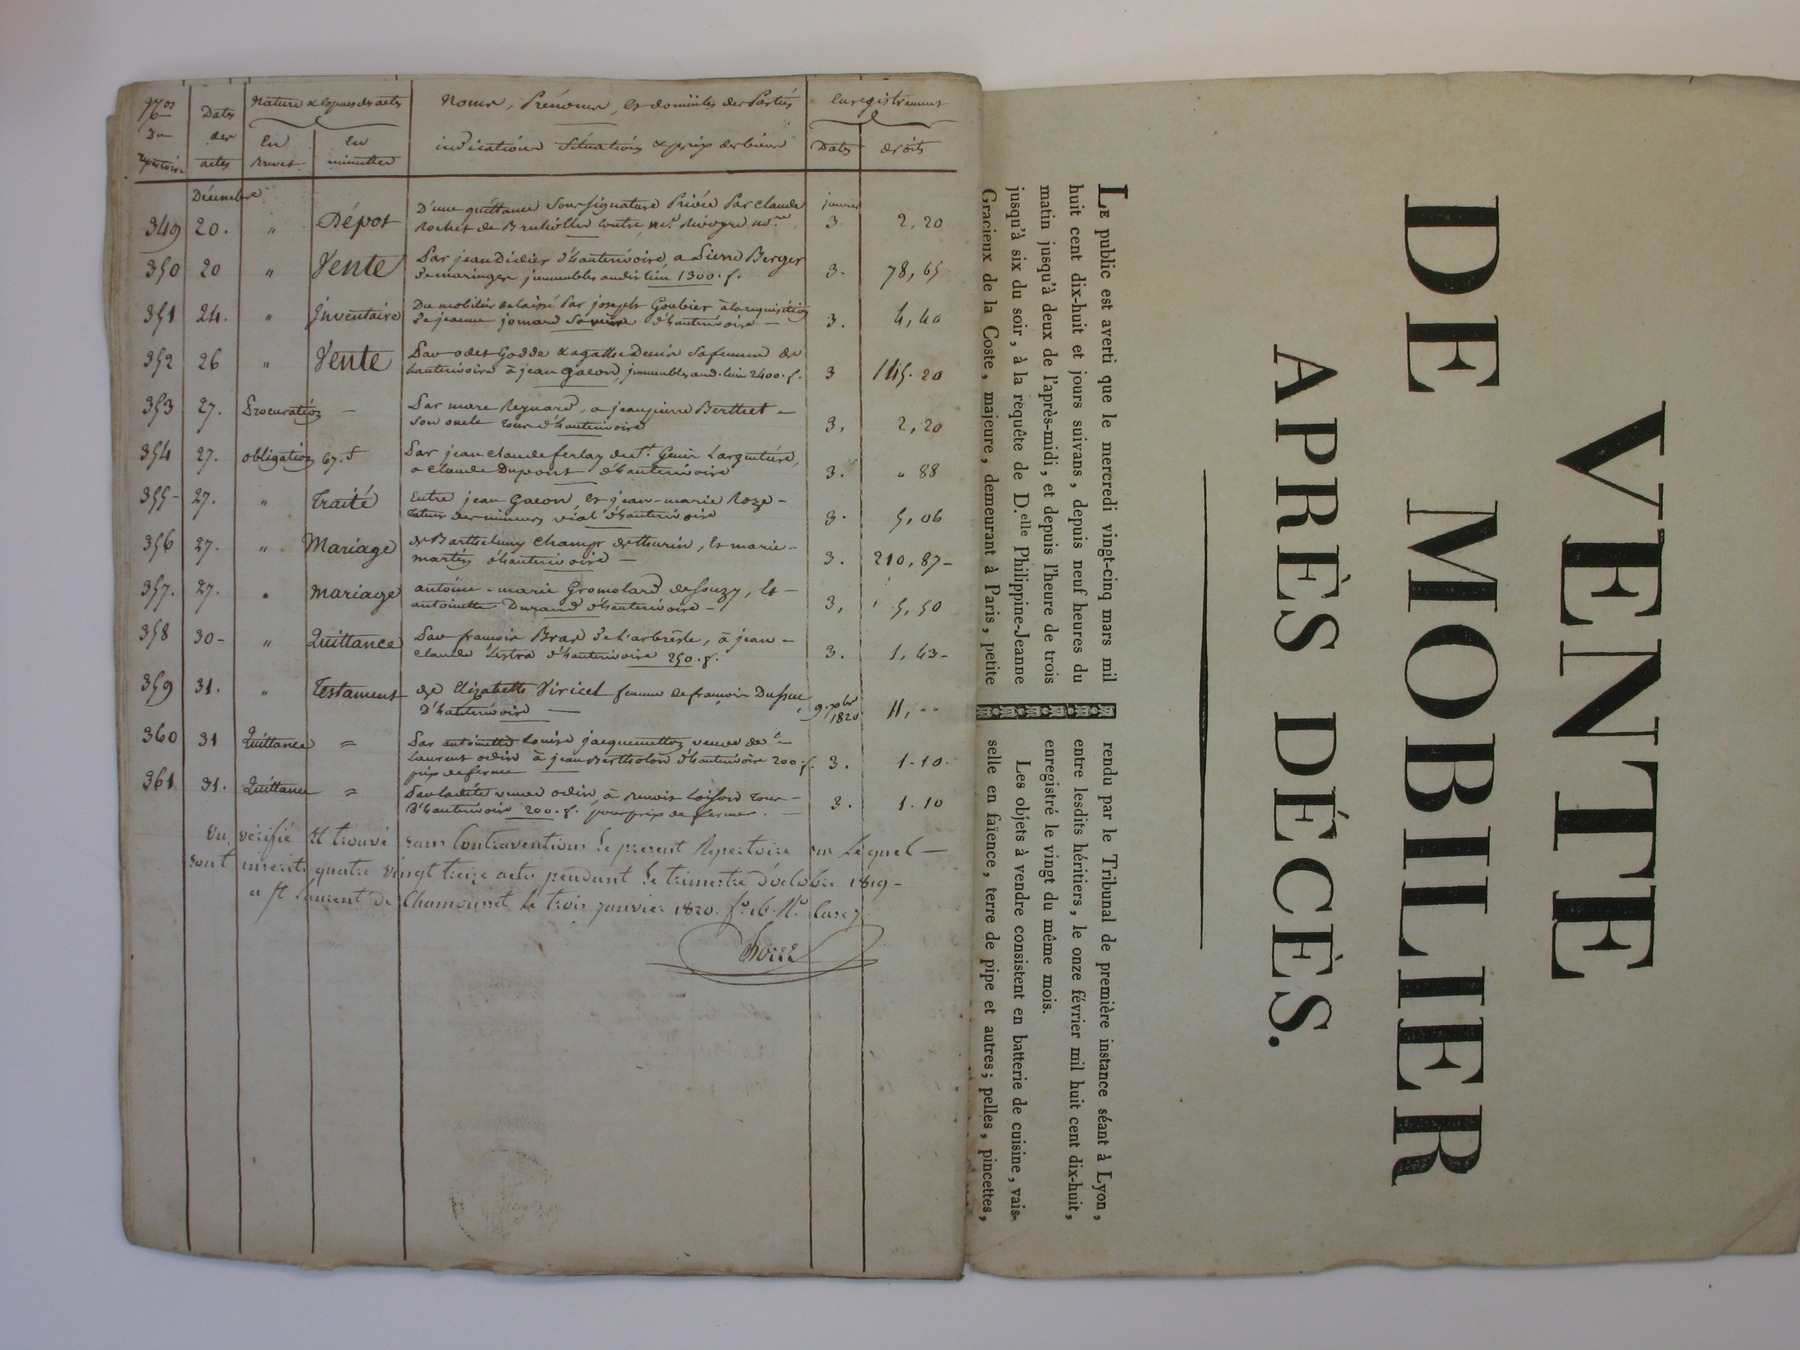 Nos Dates Nature & espèces des actes Noms, Prénoms, et domiciles des Parties Enregistrement
du des En En indications Situations & prix des biens Dates droits
répertoire actes brevet minutes
Décembre
349 20. " Dépot D'une quittance sous signature Privée Par Claude janvier
Rochet de Brullioles contre 3 2,20
350 20 " Vente Par jean Didier d'hauterivoire, a Pierre Berger
de maringes immeubles audit lieu 1300. f. 3. 78,65
351 24. " Inventaire Du mobilier delaissé Par joseph Goubier à la requisition
de jeanne jomard sa veuve d'hauterivoire — 3. 4,40
352 26 " Vente Par odet Godde & agathe Denis sa femme de
hauterivoire à jean Gacon, immeubles aud. lieu 2400. f. 3 145.20
353 27. Procuration — Par marc Reynard, a jean pierre Berthet —
son oncle tous d'hauterivoire 3, 2,20
354 27. obligation 67. f Par jean claude ferlay de st. Genis L'argentière,
a Claude Dupont d'hauterivoire 3. " 88
355- 27. " Traité Entre jean Gacon et jean-marie Roze —
tuteur des mineurs vial d'hauterivoire 3. 5,06
356 27. " Mariage de Barthelemy Champ de thurin, et marie —
martin d'hauterivoire — 3. 210,87-
357. 27. " Mariage antoine-marie Gromolard de souzy, et —
antoinette Durand d'hauterivoire — 3, 5,50
358 30- " Quittance Par françois Bras de l'arbresle, à jean —
claude d'hauterivoire 250. f. 3. 1,43-
359 31. " Testament de Elizabeth Viricel femme de françois
D'hauterivoire — 9. xbre 1820 11,"
360 31 Quittance = Par antoinette Louise jacquemetton veuve de
Laurent odin à jean Bertholon d'hauterivoire 200 f. 3. 1.10.
prix de ferme
361 31. Quittance = Par ladite veuve odin, à Benoit Loison tous —
D'hauterivoire 200. f. pour prix de ferme. — 3. 1.10
Vu, vérifié et trouvé sans Contraventions le present Repertoire sur Lequel —
sont inscrits quatre vingt treize actes pendant le trimestre d'octobre 1819 —
a st Laurent de Chamousset le trois janvier 1820.
VENTE
DE MOBILIER
APRÈS DÉCÈS.
LE public est averti que le mercredi vingt-cinq mars mil
huit cent dix-huit et jours suivans, depuis neuf heures du
matin jusqu'à deux de l'après-midi, et depuis l'heure de trois
jusqu'à six du soir, à la requête de D.elle Philippine-Jeanne
Gracieux de la Coste, majeure, demeurant à Paris, petite
rendu par le Tribunal de première instance séant à Lyon,
entre lesdits héritiers, le onze février mil huit cent dix-huit,
enregistré le vingt du même mois.
Les objets à vendre consistent en batterie de cuisine, vais-
selle en faïence, terre de pipe et autres; pelles, pincettes,